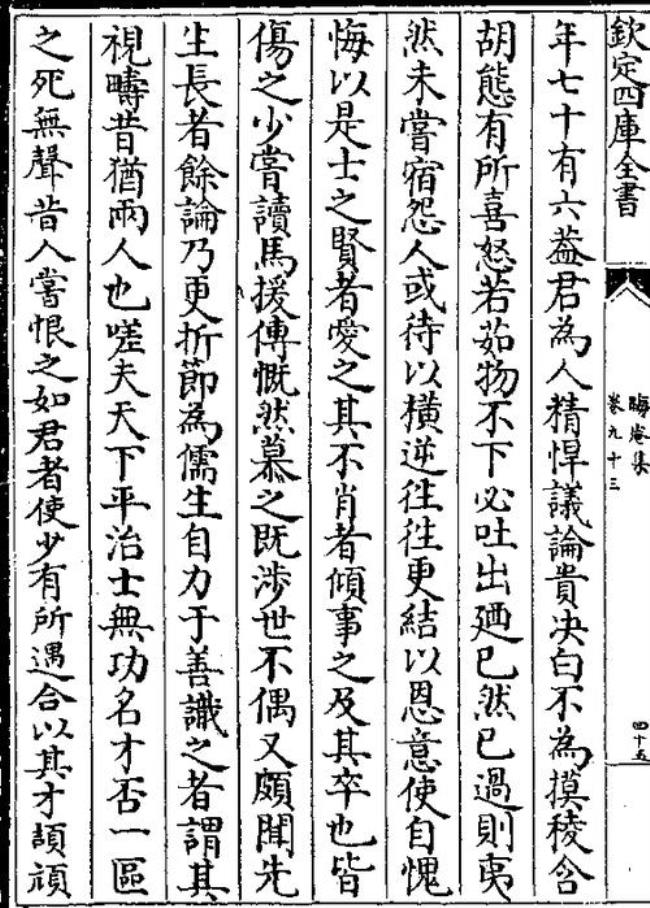 欽定四庫全書
晦庵集
卷九十三
四十五
年七十有六葢君為人精悍議論貴決白不為摸稜含
胡態有所喜怒若茹物不下必吐出廼已然已過則夷
然未嘗宿怨人或待以橫逆徃徃更結以恩意使自愧
悔以是士之賢者愛之其不肖者傾事之及其卒也皆
傷之少嘗讀馬援傳慨然慕之既涉世不偶又頗聞先
生長者餘論乃更折節為儒生自力于善識之者謂其
視疇昔猶兩人也嗟夫天下平治士無功名才否一區
之死無聲昔人嘗恨之如君者使少有所遇合以其才頡頏